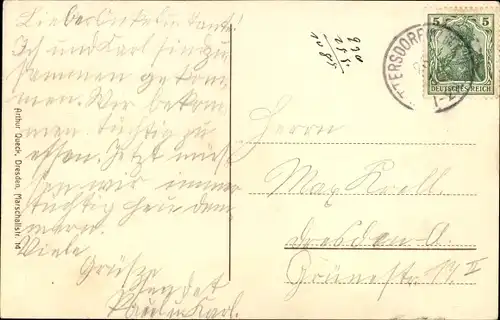 Lieber Onkel u. Tante!
Ich und Karl sind zu
sammen gekom
men. Wir bekom
men tüchtig zu
essen. Jetzt müs
sen wir immer
tüchtig heu
Viele
Grüsze
sendet
Paul u. Karl.
Arthur Queck, Dresden, Marschallstr. 14
TTERSDORF
1-2
5 5
DEUTSCHES REICH
Herrn
Max Knoll.
Dresden A.
Grünestr. 14 II